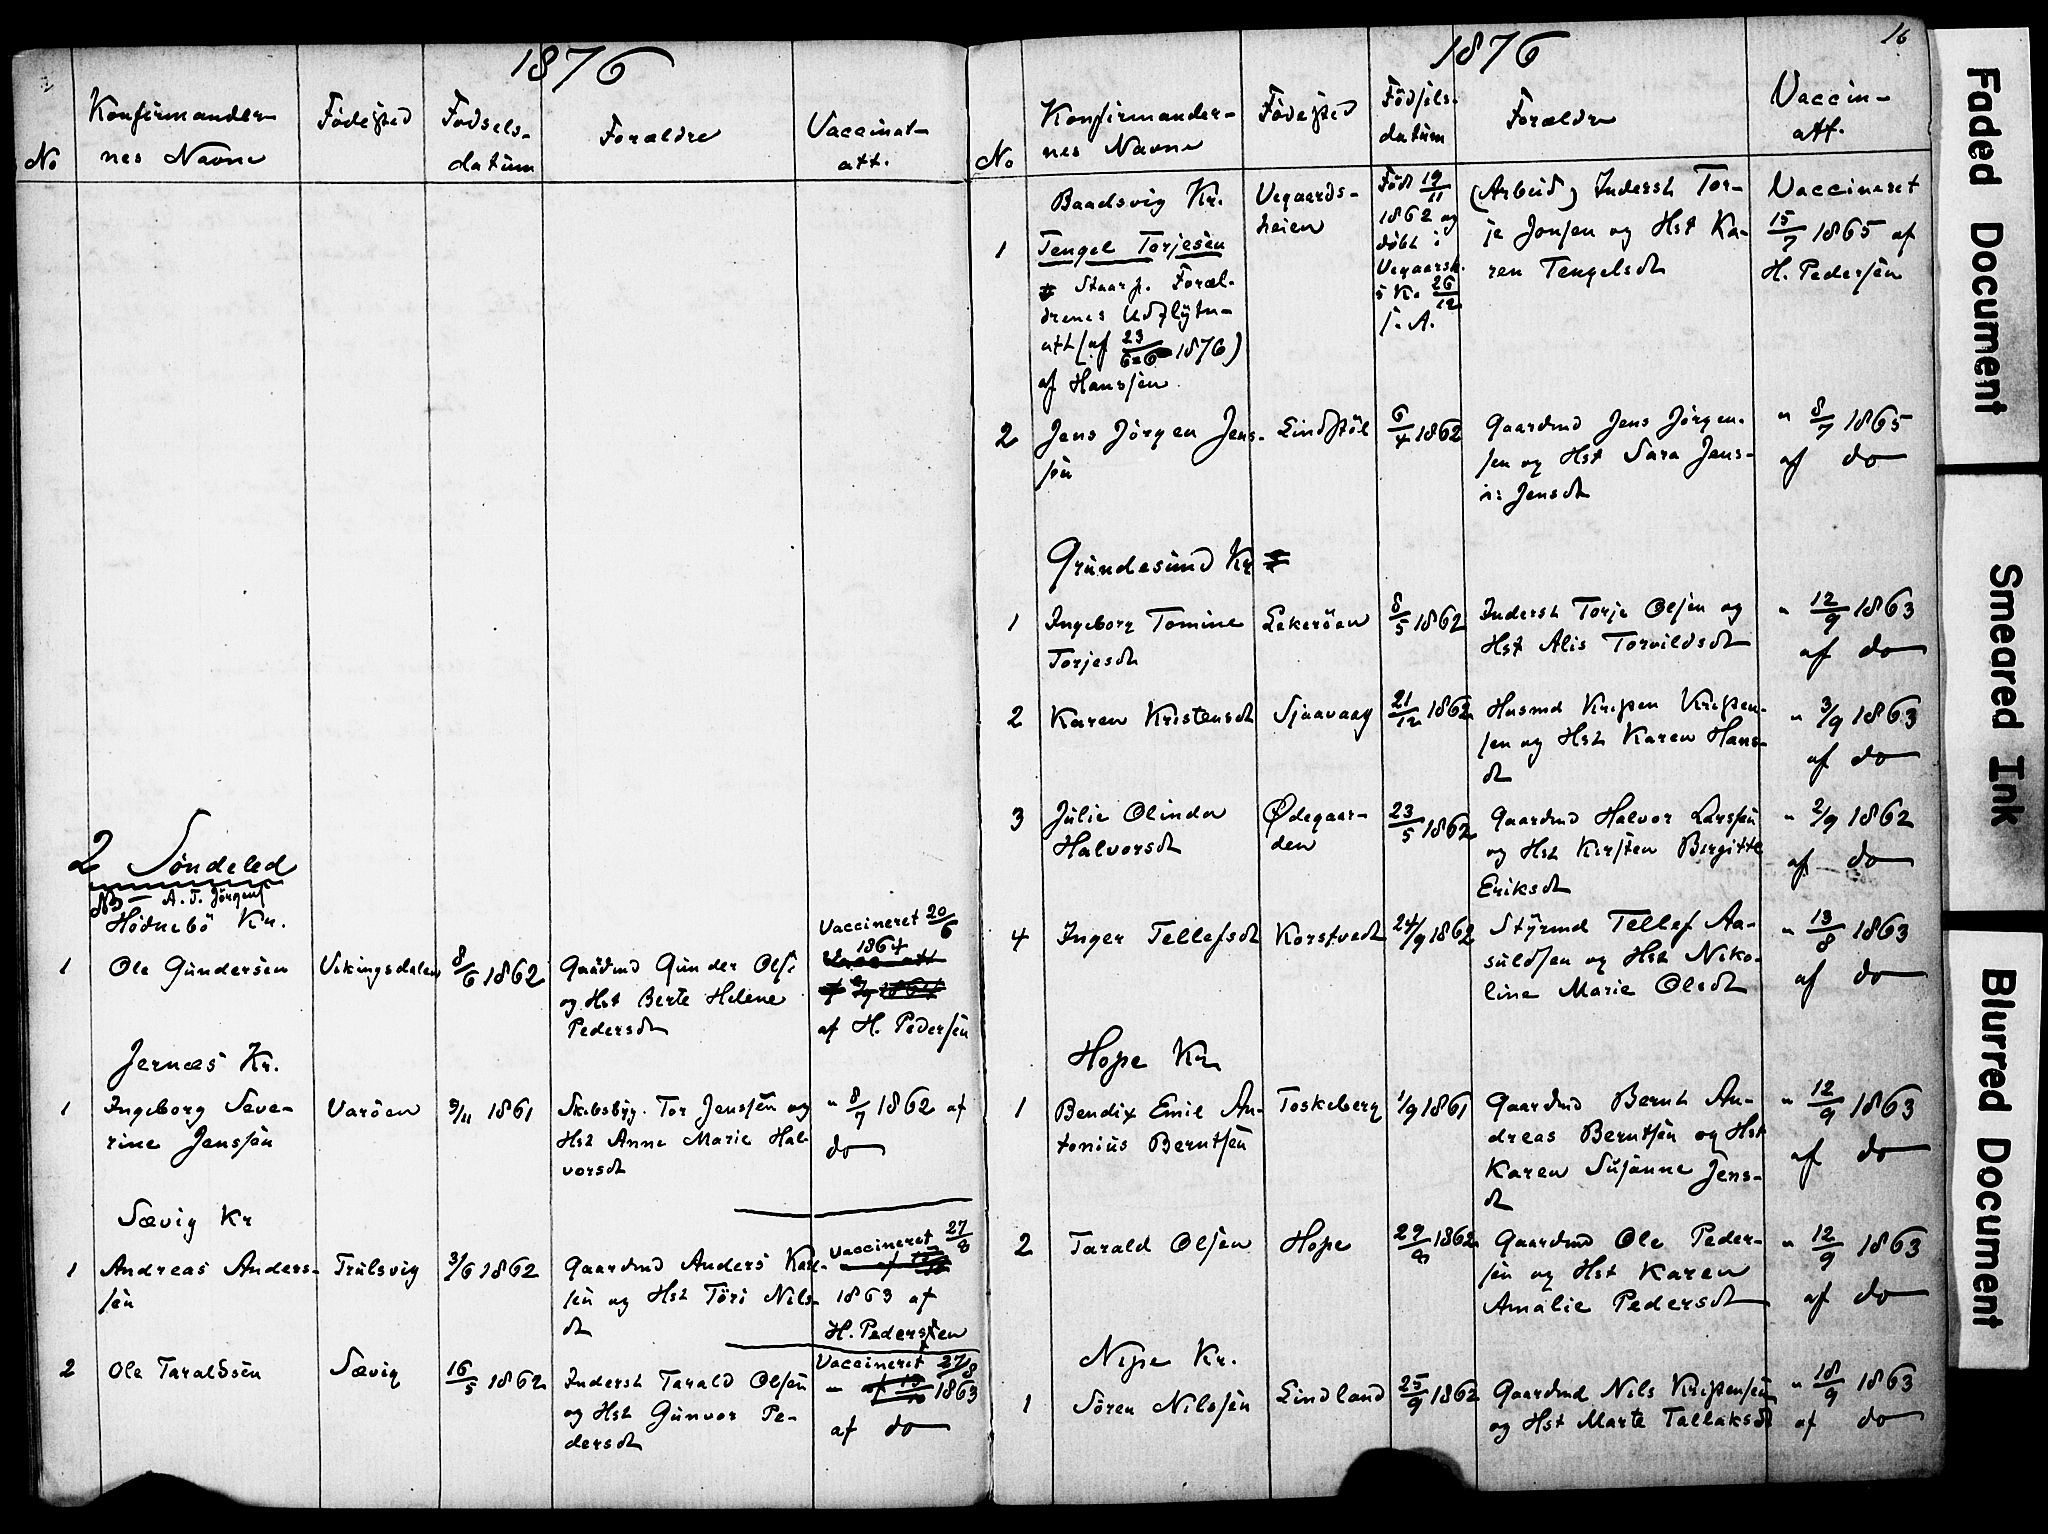 1876
No
Konfirmander-
nes Navne
Fødested
Fødsels-
datum
Forældre
Vaccinat-
att.
2 Søndeled
NB — A. T. Jørgens
Hødnebö Kr.
1 Ole Gundersen Vikingsdalen 8/6 1862 Gaardmd Gunder Ols:
og Hst Berte Helene
Pedersdt
Vaccineret 20/6
1864
af H. Pedersen
Jernæs Kr.
1 Ingeborg Seve-
rine Jenssen
Varöen 9/11 1861 Skibsbyg. Tor Jenssen og
Hst Anne Marie Hal-
vorsdt
" 8/7 1862 af
do
Sævig Kr
1 Andreas Anders-
sen
Trulsvig 3/6 1862 Gaardmd Anders Karl-
sen og Hst Töri Nils-
dt
Vaccineret 27/8
1863 af
H. Pedersen
2 Ole Taraldsen Sævig 16/5 1862 Indersh Tarald Olsen
og Hst Gunvor Pe-
dersdt
Vaccineret 27/8
" 1863
af do
16
1876
No
Konfirmander-
nes Navne
Fødested
Fødsels-
datum
Forældre
Vaccin-
att.
Baadsvig Kr.
1 Tengel Torjesen
Staar p. Foræl-
drenes Udflytn-
att (af 23/6 1876)
af Hanssen
Vegaards-
heien
Född 19/11
1862 og
döbt i
Vegaarsh.
s K. 26/12
s. A.
(Arbeid) Indersh Tor-
je Jonsen og Hst Ka-
ren Tengelsdt
Vaccineret
15/7 1865 af
H. Pedersen
2 Jens Jörgen Jens-
sen
Lindstöl 6/4 1862 Gaardmd Jens Jörgen-
sen og Hst Sara Jens-
n: Jensdt
" 8/7 1865
af do
Grundesund Kr
1 Ingeborg Tomine
Torjesdt
Lekeröen 8/5 1862 Indersh Torje Olsen og
Hst Alis Torvildsdt
" 12/9 1863
af do
2 Karen Kristensdt Sjaavaag 21/12 1862 Husmd Kristen Kristen-
sen og Hst Karen Hans-
dt
" 3/9 1863
af do
3 Julie Olinda
Halvorsdt
Ødegaar-
den
23/5 1862 Gaardmd Halvor Larssen
og Hst Kirsten Birgitte
Eriksdt
" 2/9 1862
af do
4 Inger Tellefsdt Korstvedt 24/9 1862 Styrmd Tellef Aa-
suldsen og Hst Niko-
line Marie Olsdt
" 13/8 1863
af do
Hope Kr
1 Bendix Emil An-
tonius Berntsen
Toskeberg 1/9 1861 Gaardmd Bernt An-
dreas Berntsen og Hst
Karen Susanne Jens-
dt
" 12/9 1863
af do
2 Tarald Olsen Hope 29/8 1862 Gaardmd Ole Peder-
sen og Hst Karen
Amalie Pedersdt
" 12/9 1863
af do
Nipe Kr.
1 Sören Nilssen Lindland 25/9 1862 Gaardmd Nils Kristensen
og Hst Marte Tallaksdt
" 18/9 1863
af do
Faded Document
Smeared Ink
Blurred Document